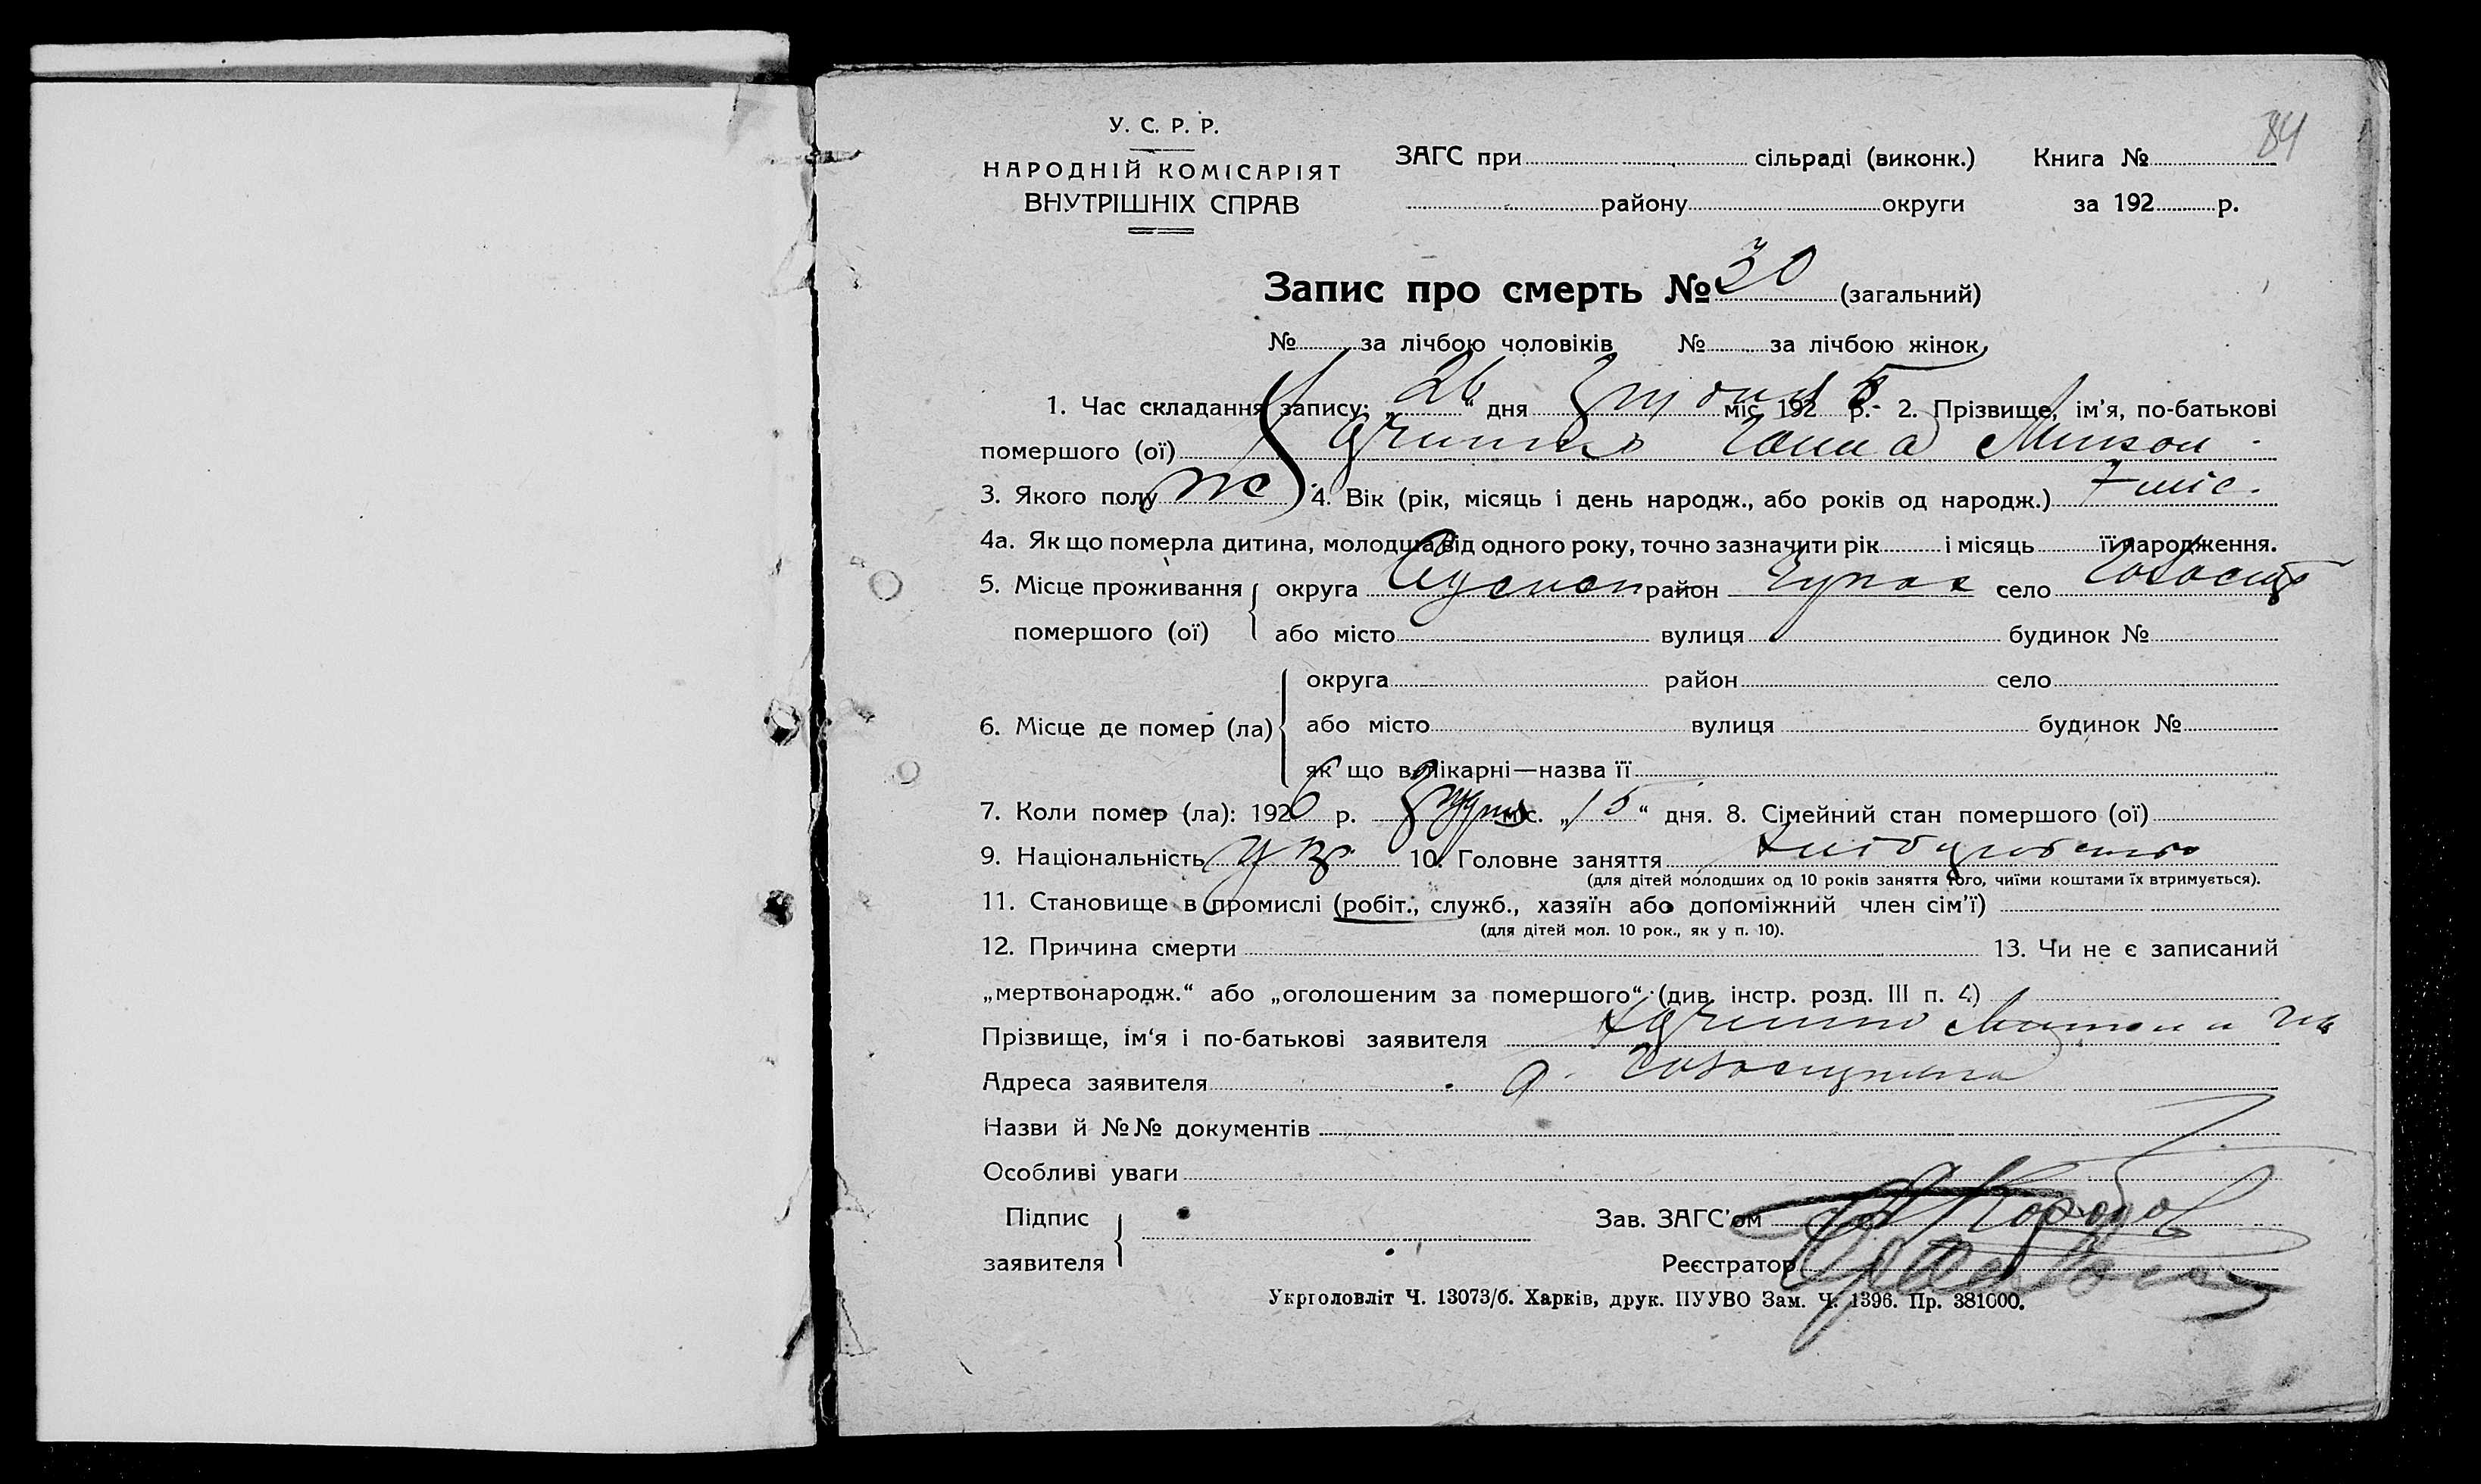 84
У. С. Р. Р.
НАРОДНІЙ КОМІСАРІЯТ
ВНУТРІШНІХ СПРАВ
ЗАГС при сільраді (виконк.) Книга №
району округи за 192 р.
Запис про смерть № 30 (загальний)
№ за лічбою чоловіків № за лічбою жінок
1. Час складання запису: „26“ дня міс 192 р. 2. Прізвище, ім’я, по-батькові
помершого (ої)
3. Якого полу ж 4. Вік (рік, місяць і день народж., або років од народж.) 7 міс.
4а. Як що померла дитина, молодша від одного року, точно зазначити рік і місяць її народження.
5. Місце проживання округа район село
помершого (ої) або місто вулиця будинок №
округа район село
6. Місце де помер (ла) або місто вулиця будинок №
як що в лікарні—назва її
7. Коли помер (ла): 1926 р. міс. „15“ дня. 8. Сімейний стан помершого (ої)
9. Національність укр 10. Головне заняття
(для дітей молодших од 10 років заняття того, чиїми коштами їх втримується).
11. Становище в промислі (робіт., служб., хазяїн або допоміжний член сім’ї)
(для дітей мол. 10 рок., як у п. 10).
12. Причина смерти 13. Чи не є записаний
„мертвонародж.“ або „оголошеним за помершого“ (див. інстр. розд. III п. 4)
Прізвище, ім‘я і по-батькові заявителя
Адреса заявителя
Назви й №№ документів
Особливі уваги
Підпис
заявителя
Зав. ЗАГС’ом
Реєстратор
Укрголовліт Ч. 13073/б. Харків, друк. ПУУВО Зам. Ч. 1396. Пр. 381000.